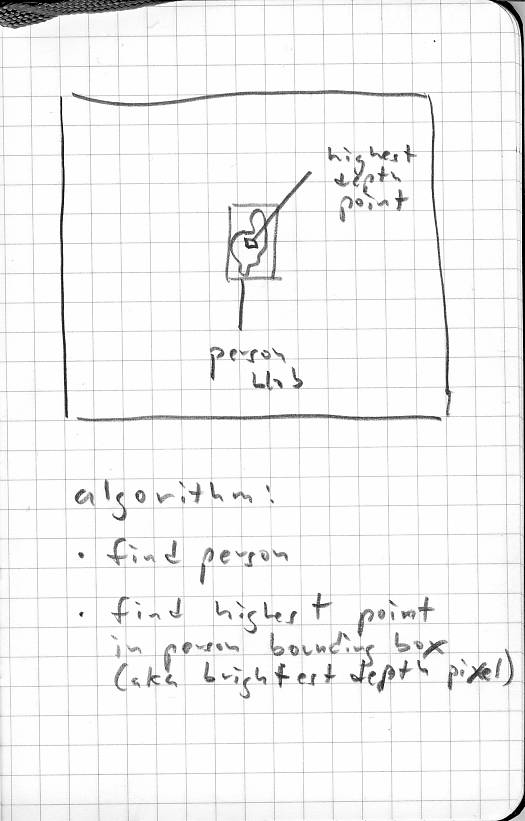 highest
depth
point
person
blob
algorithm:
· find person
· find highest point
in person bounding box
(aka brightest depth pixel)